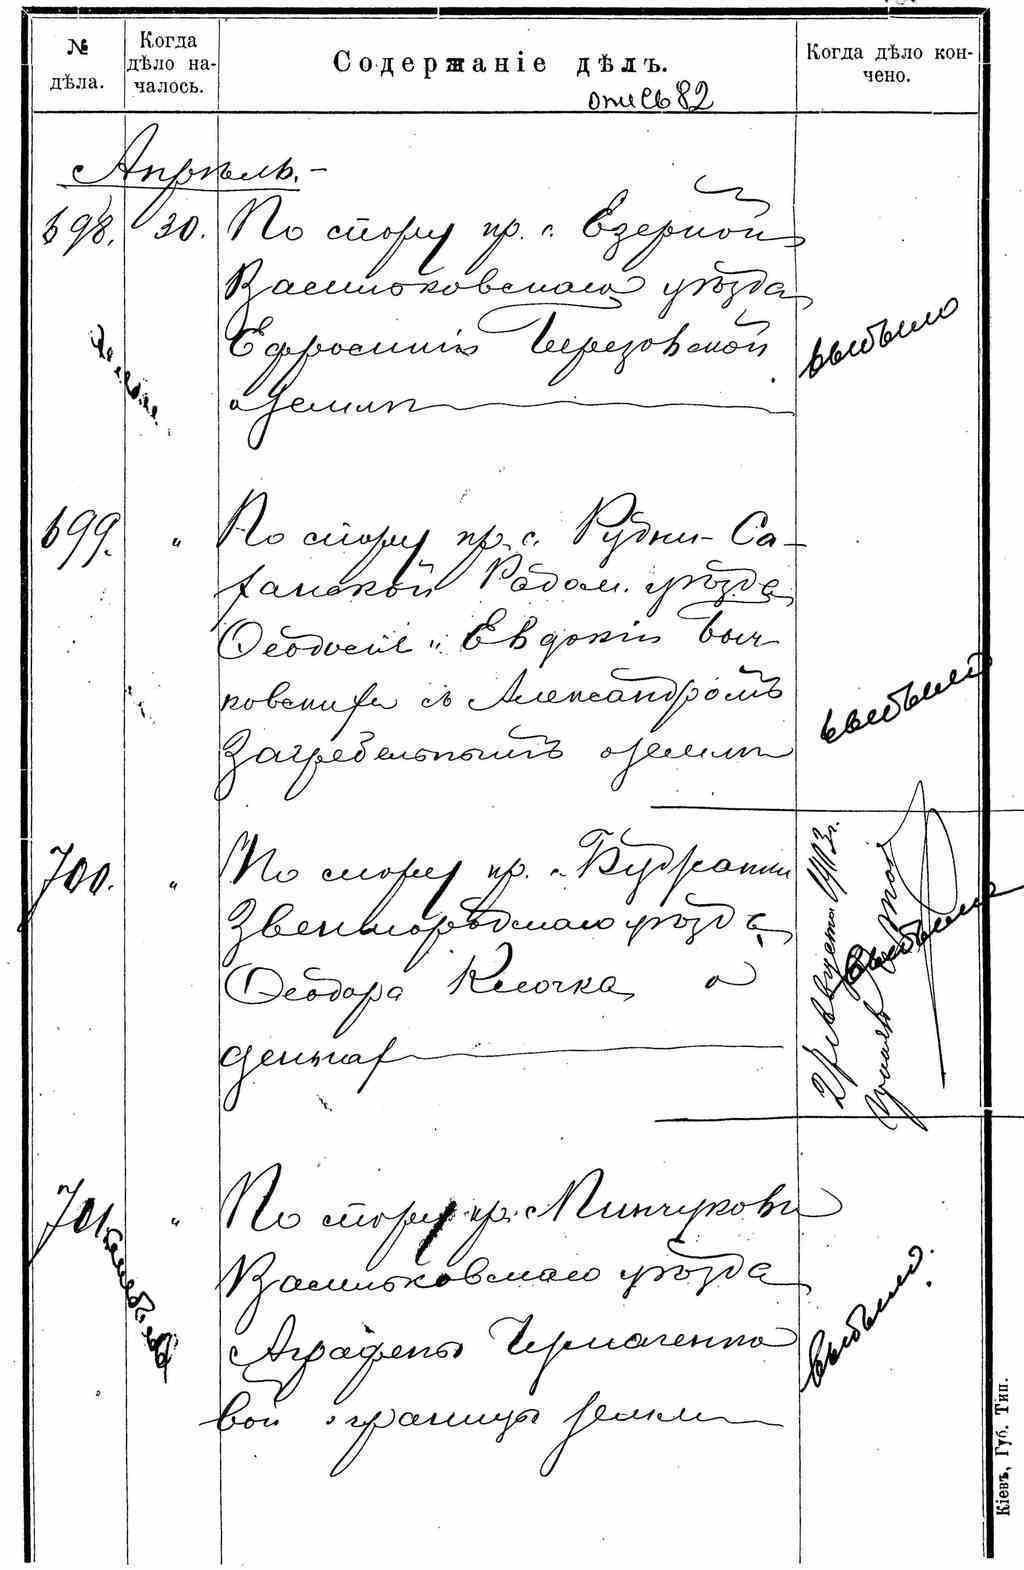 № дѣла.
Когда дѣло на-
чалось.
Содержаніе дѣлъ.
Когда дѣло кон-
чено.
опись 82
Апрѣль.-
698. 30. По спору кр. с. Езерной
Васильковскаго уѣзда
Ефросиніи Березовской
о землѣ
выбыло
699. " По спору кр. с. Рудни-
Радом. уѣзда
Ѳеодосія и Евдокіи Выч
ковскихъ съ Александромъ
Загребельнымъ о землѣ
выбыло
700. " По спору кр. с.
Звенигородскаго уѣзда
Ѳеодора Клочка о
деньгах
Августа 1913 г.
выбыло
701. " По спору кр. с. Пинчуковъ
Васильковскаго уѣзда
Аграфены
вой о границѣ земли
выбыло.
Кіевъ, Губ. Тип.